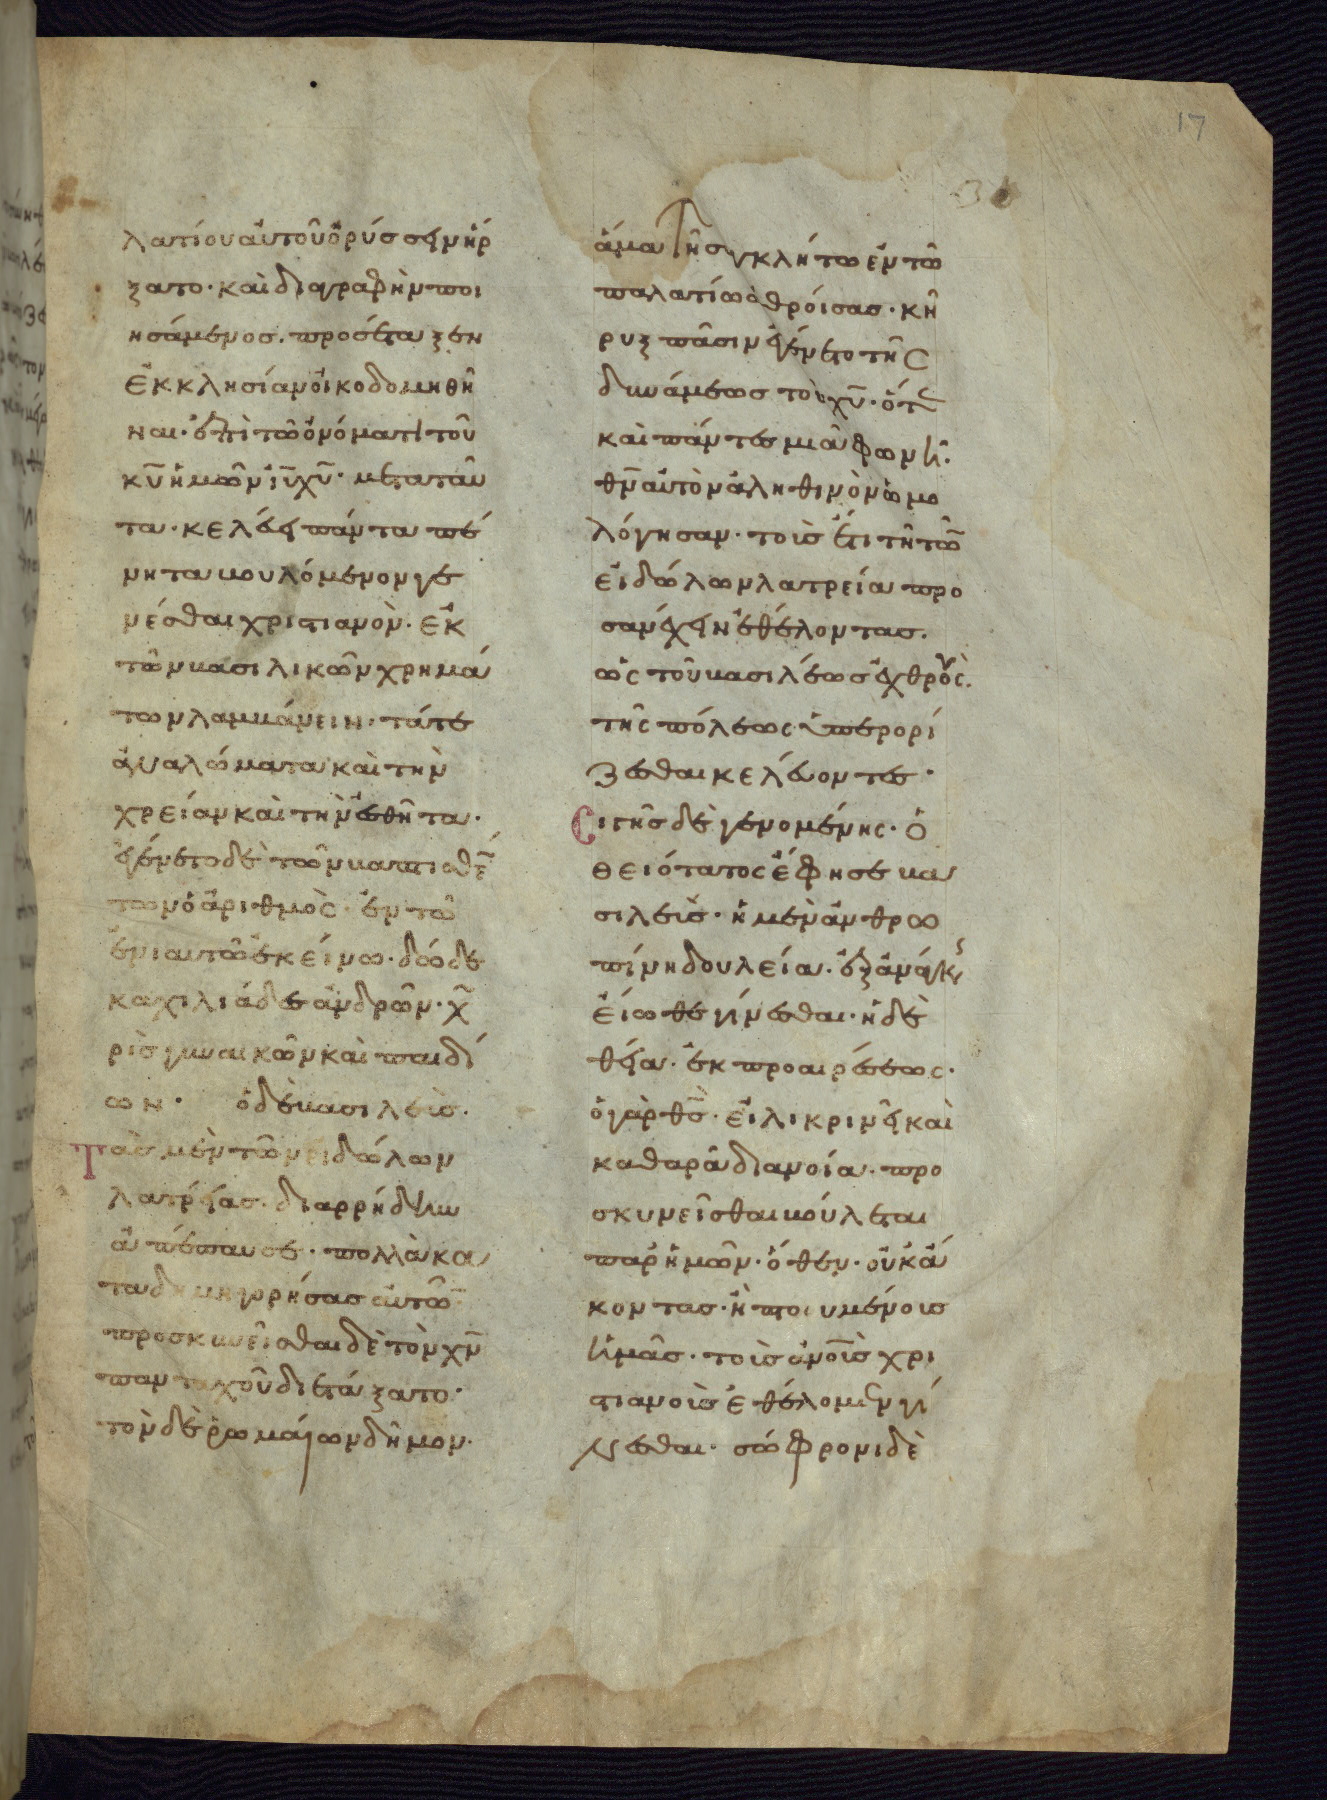 17
λατίου αὐτοῦ ὀρύσσειν ἤρ
ξατο· καὶ διαγραφὴν ποι
ησάμενος. προσέταξεν
ἐκκλησίαν οἰκοδομηθῆ
ναι· ἐπὶ τῶ ὀνόματι τοῦ
κ̅υ̅ ἡμῶν ι̅υ̅ χ̅υ̅· μετὰ ταῦ
τα· κελεύει πάντα πέ
νητα βουλόμενον γε
νέσθαι χριστιανὸν. ἐκ
τῶν βασιλικῶν χρημά
των λαμβάνειν· τά τε
ἀναλώματα καὶ τὴν
χρείαν καὶ τὴν ἐσθῆτα·
ἐγένετο δὲ τῶν βαπτισθέ̅
των ὁ ἀριθμὸς· ἐν τῶ
ἐνιαυτῶ ἐκείνω· δώδε
κα χιλιάδες ἀνδρῶν· χω
ρὶς γυναικῶν καὶ παιδί
ων· ὁ δὲ βασιλεὺς.
Τὰς μὲν τῶν εἰδώλων
λατρείας· διαρρήδην
ἀπέπαυσε· πολλὰ κα
ταδημηγορήσας αὐτῶ̅·
προσκυνεῖσθαι δὲ τὸν χ̅ν̅
πανταχοῦ διετάξατο·
τὸν δὲ ῥωμαίων δῆμον·
ἅμα τῆ συγκλήτω ἐν τῶ
παλατίω ἀθροίσας· κῆ
ρυξ πᾶσιν ἐγένετο τῆς
δυνάμεως τοῦ χ̅υ̅· ὅτε
καὶ πάντες μιᾶ φωνῆ·
θ̅ν̅ αὐτὸν ἀληθινὸν ὡμο
λόγησαν· τοὺς ἔτι τῆ τῶ̅
εἰδώλων λατρεία προ
σανέχειν ἐθέλοντας.
ὡς τοῦ βασιλέως ἐχθροὺς.
τῆς πόλεως ὑπερορί
ζεσθαι κελεύοντες·
Σιγῆς δὲ γενομένης· ὁ
θειότατος ἔφησε βα
σιλεὺς· ἡ μὲν ἀνθρω
πίνη δουλεία. ἐξ ἀνάγκης
εἴωθε γίνεσθαι· ἡ δὲ
θεία· ἐκ προαιρέσεως·
ὁ γὰρ θ̅ς̅· εἰλικρινεῖ καὶ
καθαρᾶ διανοία· προ
σκυνεῖσθαι βούλεται
παρ' ἡμῶν· ὅθεν· οὐκ ἄ
κοντας· ἢ ποιουμένοις
ἡμᾶς· τοὺς ἀν̅ο̅υ̅ς χρι
στιανοὺς ἐθέλομεν γί
νεσθαι· σώφρονι δὲ